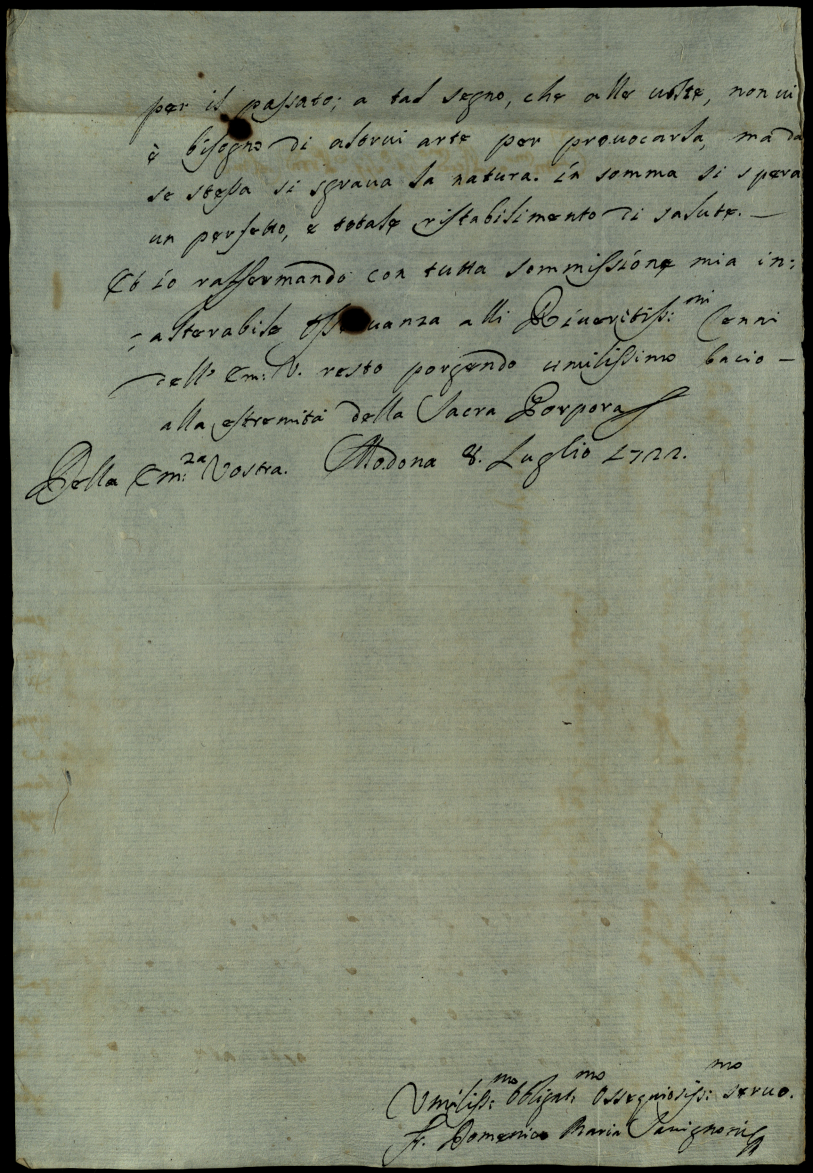 per il passato; a tal segno, che alle uolte, non ui
è bisogno di altrui arte per prouocarla, ma da
se stessa si sgraua la natura. in somma si spera
un perfetto, e totale ristabilimento di salute. —
Et io raffermando con tutta sommissione mia in:
:alterabile Osseruanza alli Riueritiss:mi Cenni
dell' Em: V. resto porgendo umilissimo bacio —
alla estremità della Sacra Porpora
Della Em:za Vostra. Modona 8. Luglio 1722.
Vmiliss:mo Obligat:mo Ossequiosiss:mo seruo.
Fr. Domenico Maria